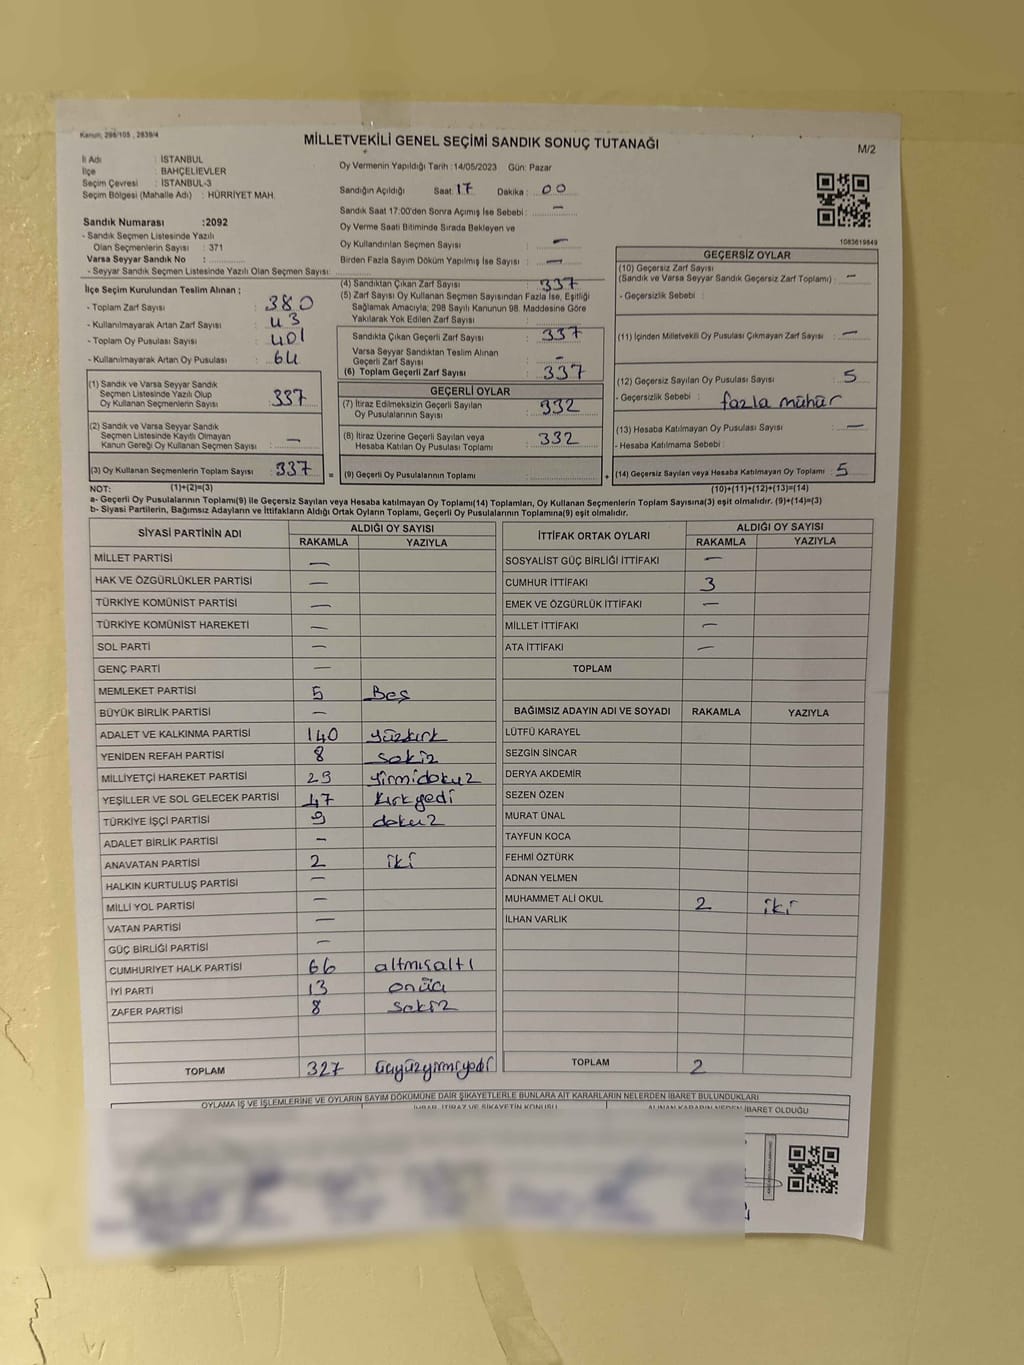 Kanun; 298/105 , 2839/4
MİLLETVEKİLİ GENEL SEÇİMİ SANDIK SONUÇ TUTANAĞI
M/2
İl Adı : İSTANBUL
İlçe : BAHÇELİEVLER
Seçim Çevresi : İSTANBUL-3
Seçim Bölgesi (Mahalle Adı) : HÜRRİYET MAH.
Sandık Numarası :2092
- Sandık Seçmen Listesinde Yazılı
Olan Seçmenlerin Sayısı : 371
Varsa Seyyar Sandık No :
- Seyyar Sandık Seçmen Listesinde Yazılı Olan Seçmen Sayısı:
Oy Vermenin Yapıldığı Tarih :14/05/2023 Gün: Pazar
Sandığın Açıldığı Saat 17 Dakika : 00
Sandık Saat 17:00'den Sonra Açımış İse Sebebi : —
Oy Verme Saati Bitiminde Sırada Bekleyen ve
Oy Kullandırılan Seçmen Sayısı : —
Birden Fazla Sayım Döküm Yapılmış İse Sayısı : —
1083619849
İlçe Seçim Kurulundan Teslim Alınan ;
- Toplam Zarf Sayısı : 380
- Kullanılmayarak Artan Zarf Sayısı : 43
- Toplam Oy Pusulası Sayısı : 401
- Kullanılmayarak Artan Oy Pusulası : 64
(1) Sandık ve Varsa Seyyar Sandık
Seçmen Listesinde Yazılı Olup
Oy Kullanan Seçmenlerin Sayısı : 337
(2) Sandık ve Varsa Seyyar Sandık
Seçmen Listesinde Kayıtlı Olmayan
Kanun Gereği Oy Kullanan Seçmen Sayısı : —
(3) Oy Kullanan Seçmenlerin Toplam Sayısı : 337 =
(4) Sandıktan Çıkan Zarf Sayısı : 337
(5) Zarf Sayısı Oy Kullanan Seçmen Sayısından Fazla İse, Eşitliği
Sağlamak Amacıyla; 298 Sayılı Kanunun 98. Maddesine Göre
Yakılarak Yok Edilen Zarf Sayısı :
Sandıkta Çıkan Geçerli Zarf Sayısı : 337
Varsa Seyyar Sandıktan Teslim Alınan
Geçerli Zarf Sayısı : —
(6) Toplam Geçerli Zarf Sayısı : 337
GEÇERLİ OYLAR
(7) İtiraz Edilmeksizin Geçerli Sayılan
Oy Pusulalarının Sayısı : 332
(8) İtiraz Üzerine Geçerli Sayılan veya
Hesaba Katılan Oy Pusulası Sayısı : 332
(9) Geçerli Oy Pusulalarının Toplamı : +
GEÇERSİZ OYLAR
(10) Geçersiz Zarf Sayısı
(Sandık ve Varsa Seyyar Sandık Geçersiz Zarf Toplamı) : —
- Geçersizlik Sebebi :
(11) İçinden Milletvekili Oy Pusulası Çıkmayan Zarf Sayısı : —
(12) Geçersiz Sayılan Oy Pusulası Sayısı : 5
- Geçersizlik Sebebi : fazla mühür
(13) Hesaba Katılmayan Oy Pusulası Sayısı : —
- Hesaba Katılmama Sebebi :
(14) Geçersiz Sayılan veya Hesaba Katılmayan Oy Toplamı : 5
NOT: (1)+(2)=(3) (10)+(11)+(12)+(13)=(14)
a- Geçerli Oy Pusulalarının Toplamı(9) ile Geçersiz Sayılan veya Hesaba katılmayan Oy Toplamı(14) Toplamları, Oy Kullanan Seçmenlerin Toplam Sayısına(3) eşit olmalıdır. (9)+(14)=(3)
b- Siyasi Partilerin, Bağımsız Adayların ve İttifakların Aldığı Ortak Oyların Toplamı, Geçerli Oy Pusulalarının Toplamına(9) eşit olmalıdır.
SİYASİ PARTİNİN ADI ALDIĞI OY SAYISI
RAKAMLA YAZIYLA
MİLLET PARTİSİ —
HAK VE ÖZGÜRLÜKLER PARTİSİ —
TÜRKİYE KOMÜNİST PARTİSİ —
TÜRKİYE KOMÜNİST HAREKETİ —
SOL PARTİ —
GENÇ PARTİ —
MEMLEKET PARTİSİ 5 Beş
BÜYÜK BİRLİK PARTİSİ —
ADALET VE KALKINMA PARTİSİ 140 yüzkırk
YENİDEN REFAH PARTİSİ 8 sekiz
MİLLİYETÇİ HAREKET PARTİSİ 29 yirmidokuz
YEŞİLLER VE SOL GELECEK PARTİSİ 47 kırkyedi
TÜRKİYE İŞÇİ PARTİSİ 9 dokuz
ADALET BİRLİK PARTİSİ —
ANAVATAN PARTİSİ 2 iki
HALKIN KURTULUŞ PARTİSİ —
MİLLİ YOL PARTİSİ —
VATAN PARTİSİ —
GÜÇ BİRLİĞİ PARTİSİ —
CUMHURİYET HALK PARTİSİ 66 altmışaltı
İYİ PARTİ 13 onüç
ZAFER PARTİSİ 8 sekiz
TOPLAM 327 üçyüzyirmiyedi
İTTİFAK ORTAK OYLARI ALDIĞI OY SAYISI
RAKAMLA YAZIYLA
SOSYALİST GÜÇ BİRLİĞİ İTTİFAKI —
CUMHUR İTTİFAKI 3
EMEK VE ÖZGÜRLÜK İTTİFAKI —
MİLLET İTTİFAKI —
ATA İTTİFAKI —
TOPLAM
BAĞIMSIZ ADAYIN ADI VE SOYADI RAKAMLA YAZIYLA
LÜTFÜ KARAYEL
SEZGİN SİNCAR
DERYA AKDEMİR
SEZEN ÖZEN
MURAT ÜNAL
TAYFUN KOCA
FEHMİ ÖZTÜRK
ADNAN YELMEN
MUHAMMET ALİ OKUL 2 iki
İLHAN VARLIK
TOPLAM 2
OYLAMA İŞ VE İŞLEMLERİNE VE OYLARIN SAYIM DÖKÜMÜNE DAİR ŞİKAYETLERLE BUNLARA AİT KARARLARIN NELERDEN İBARET BULUNDUKLARI
İHBAR, İTİRAZ VE ŞİKAYETİN KONUSU ALINAN KARARIN NEDEN İBARET OLDUĞU